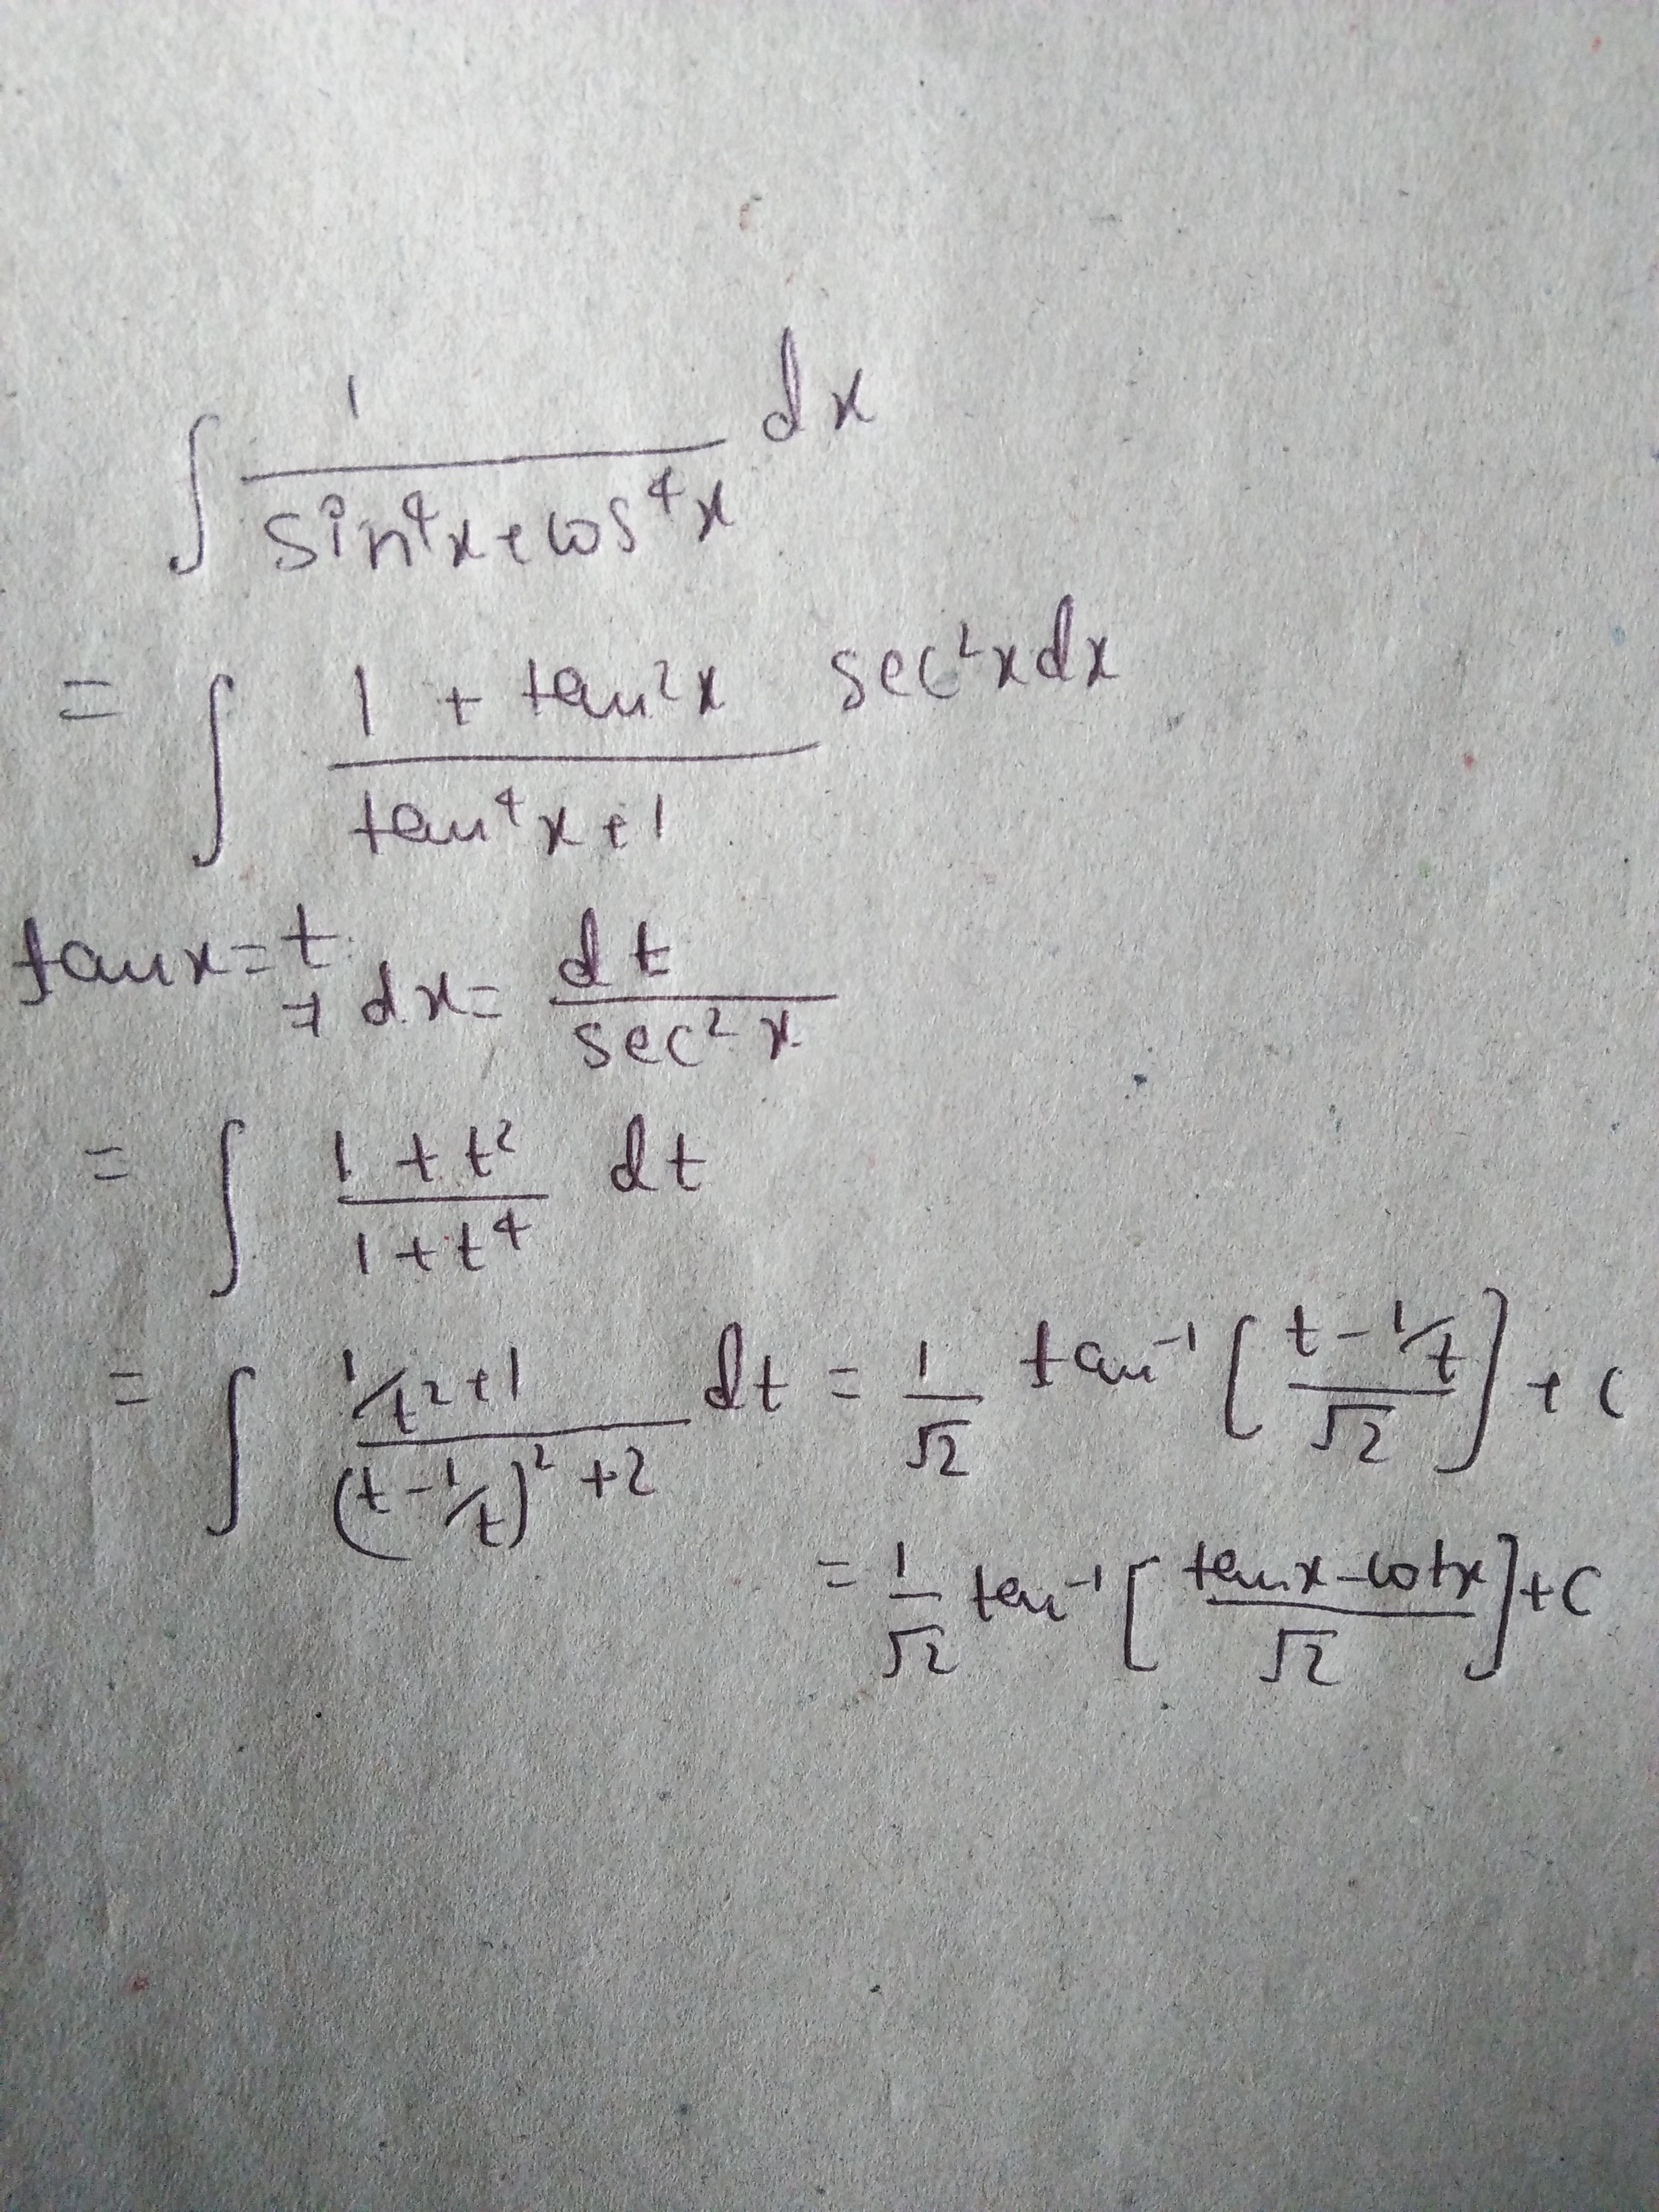 ∫ 1/(sin⁴x+cos⁴x) dx
= ∫ (1 + tan²x)/(tan⁴x+1) sec²x dx
tanx = t ⇒ dx = dt/(sec²x)
= ∫ (1 + t²)/(1 + t⁴) dt
= ∫ (1/t² + 1)/((t - 1/t)² + 2) dt = 1/√2 tan⁻¹ [(t - 1/t)/√2] + C
= 1/√2 tan⁻¹ [(tanx - cotx)/√2] + C